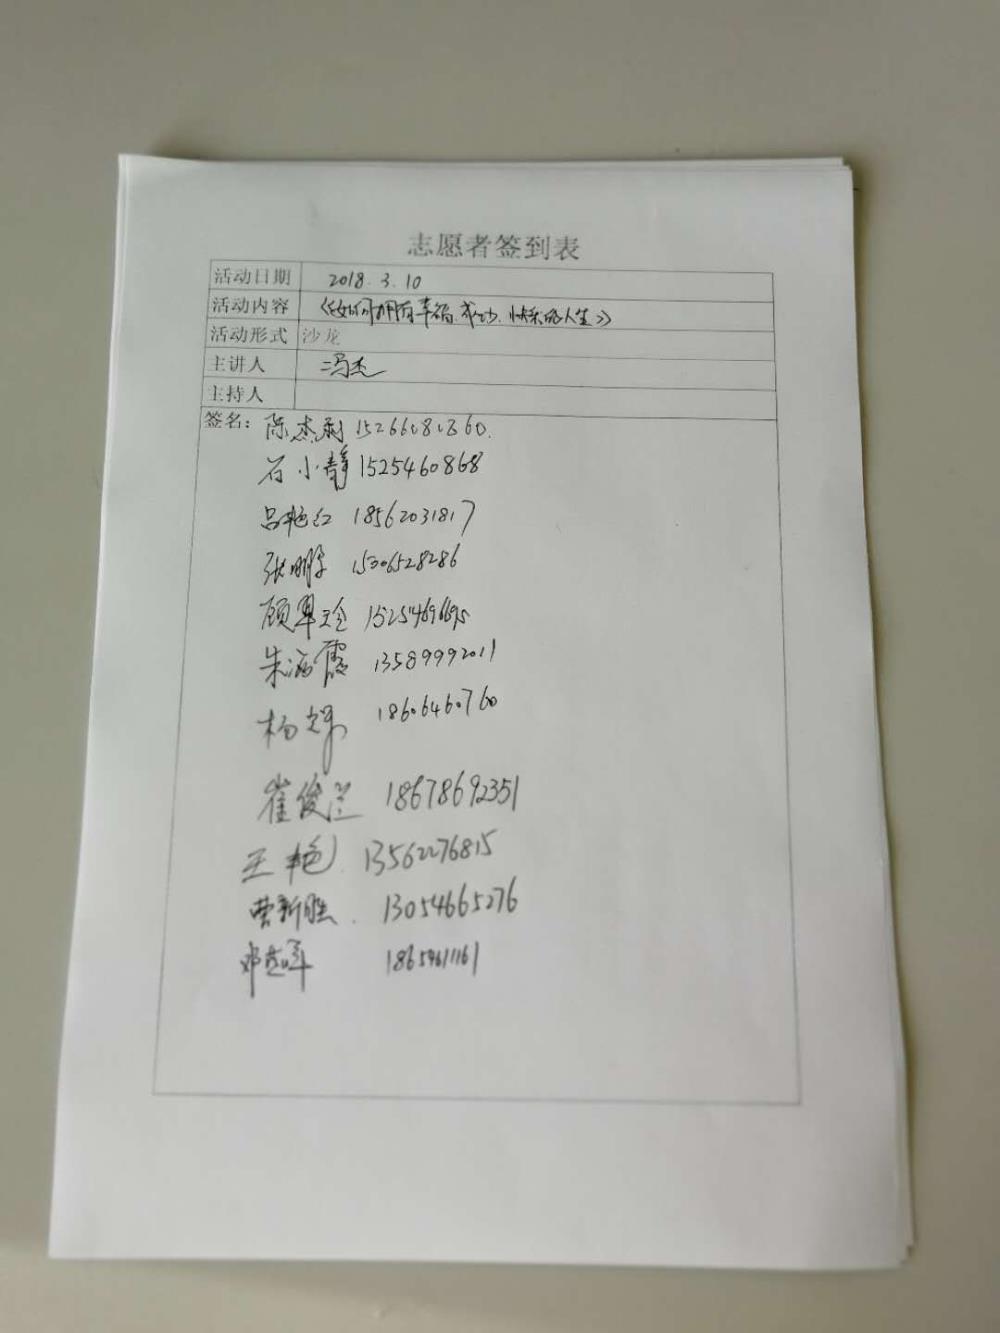 志愿者签到表
活动日期 2018.3.10
活动内容 《如何拥有幸福、成功、快乐的人生》
活动形式 沙龙
主讲人 冯杰
主持人
签名：陈杰 15266080360.
石小静 15254460868
吕艳红 18562031817
张鹏 15306528286
顾翠 15254696695
朱海霞 13589992011
杨 18606460760
崔俊兰 18678692351
王艳 13562276815
曹新胜 13054665276
邓 18654611161